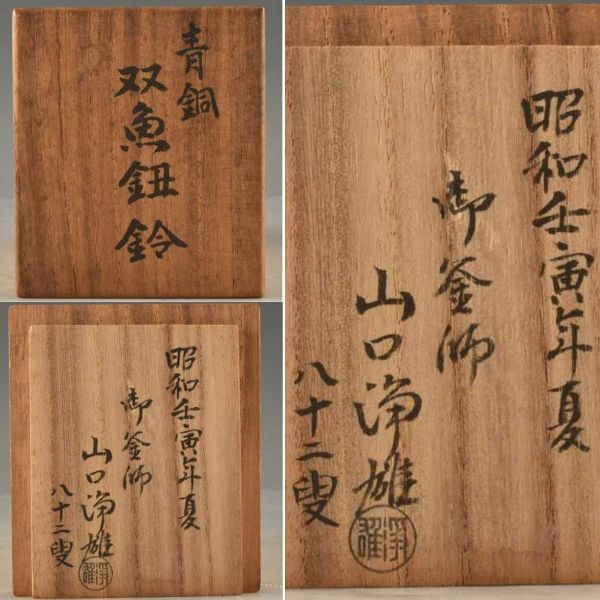 青銅
双魚鈕鈴
昭和壬寅年夏
御釜師
山口浄雄
八十二叟
浄雄
昭和壬寅年夏
御釜師
山口浄雄
八十二叟
浄雄